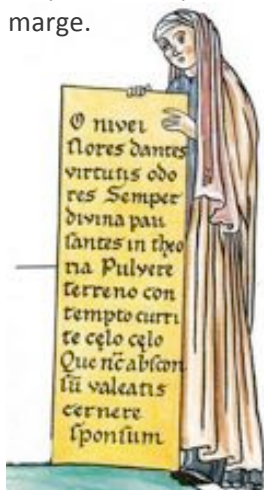 marge.
O nivei
flores dantes
virtutis odo
res Semper
divina pau
santes in theo
ria Pulvere
terreno con
tempto curri
te cęlo cęlo
Que nc̄ abscon
sū valeatis
cernere
sponsum